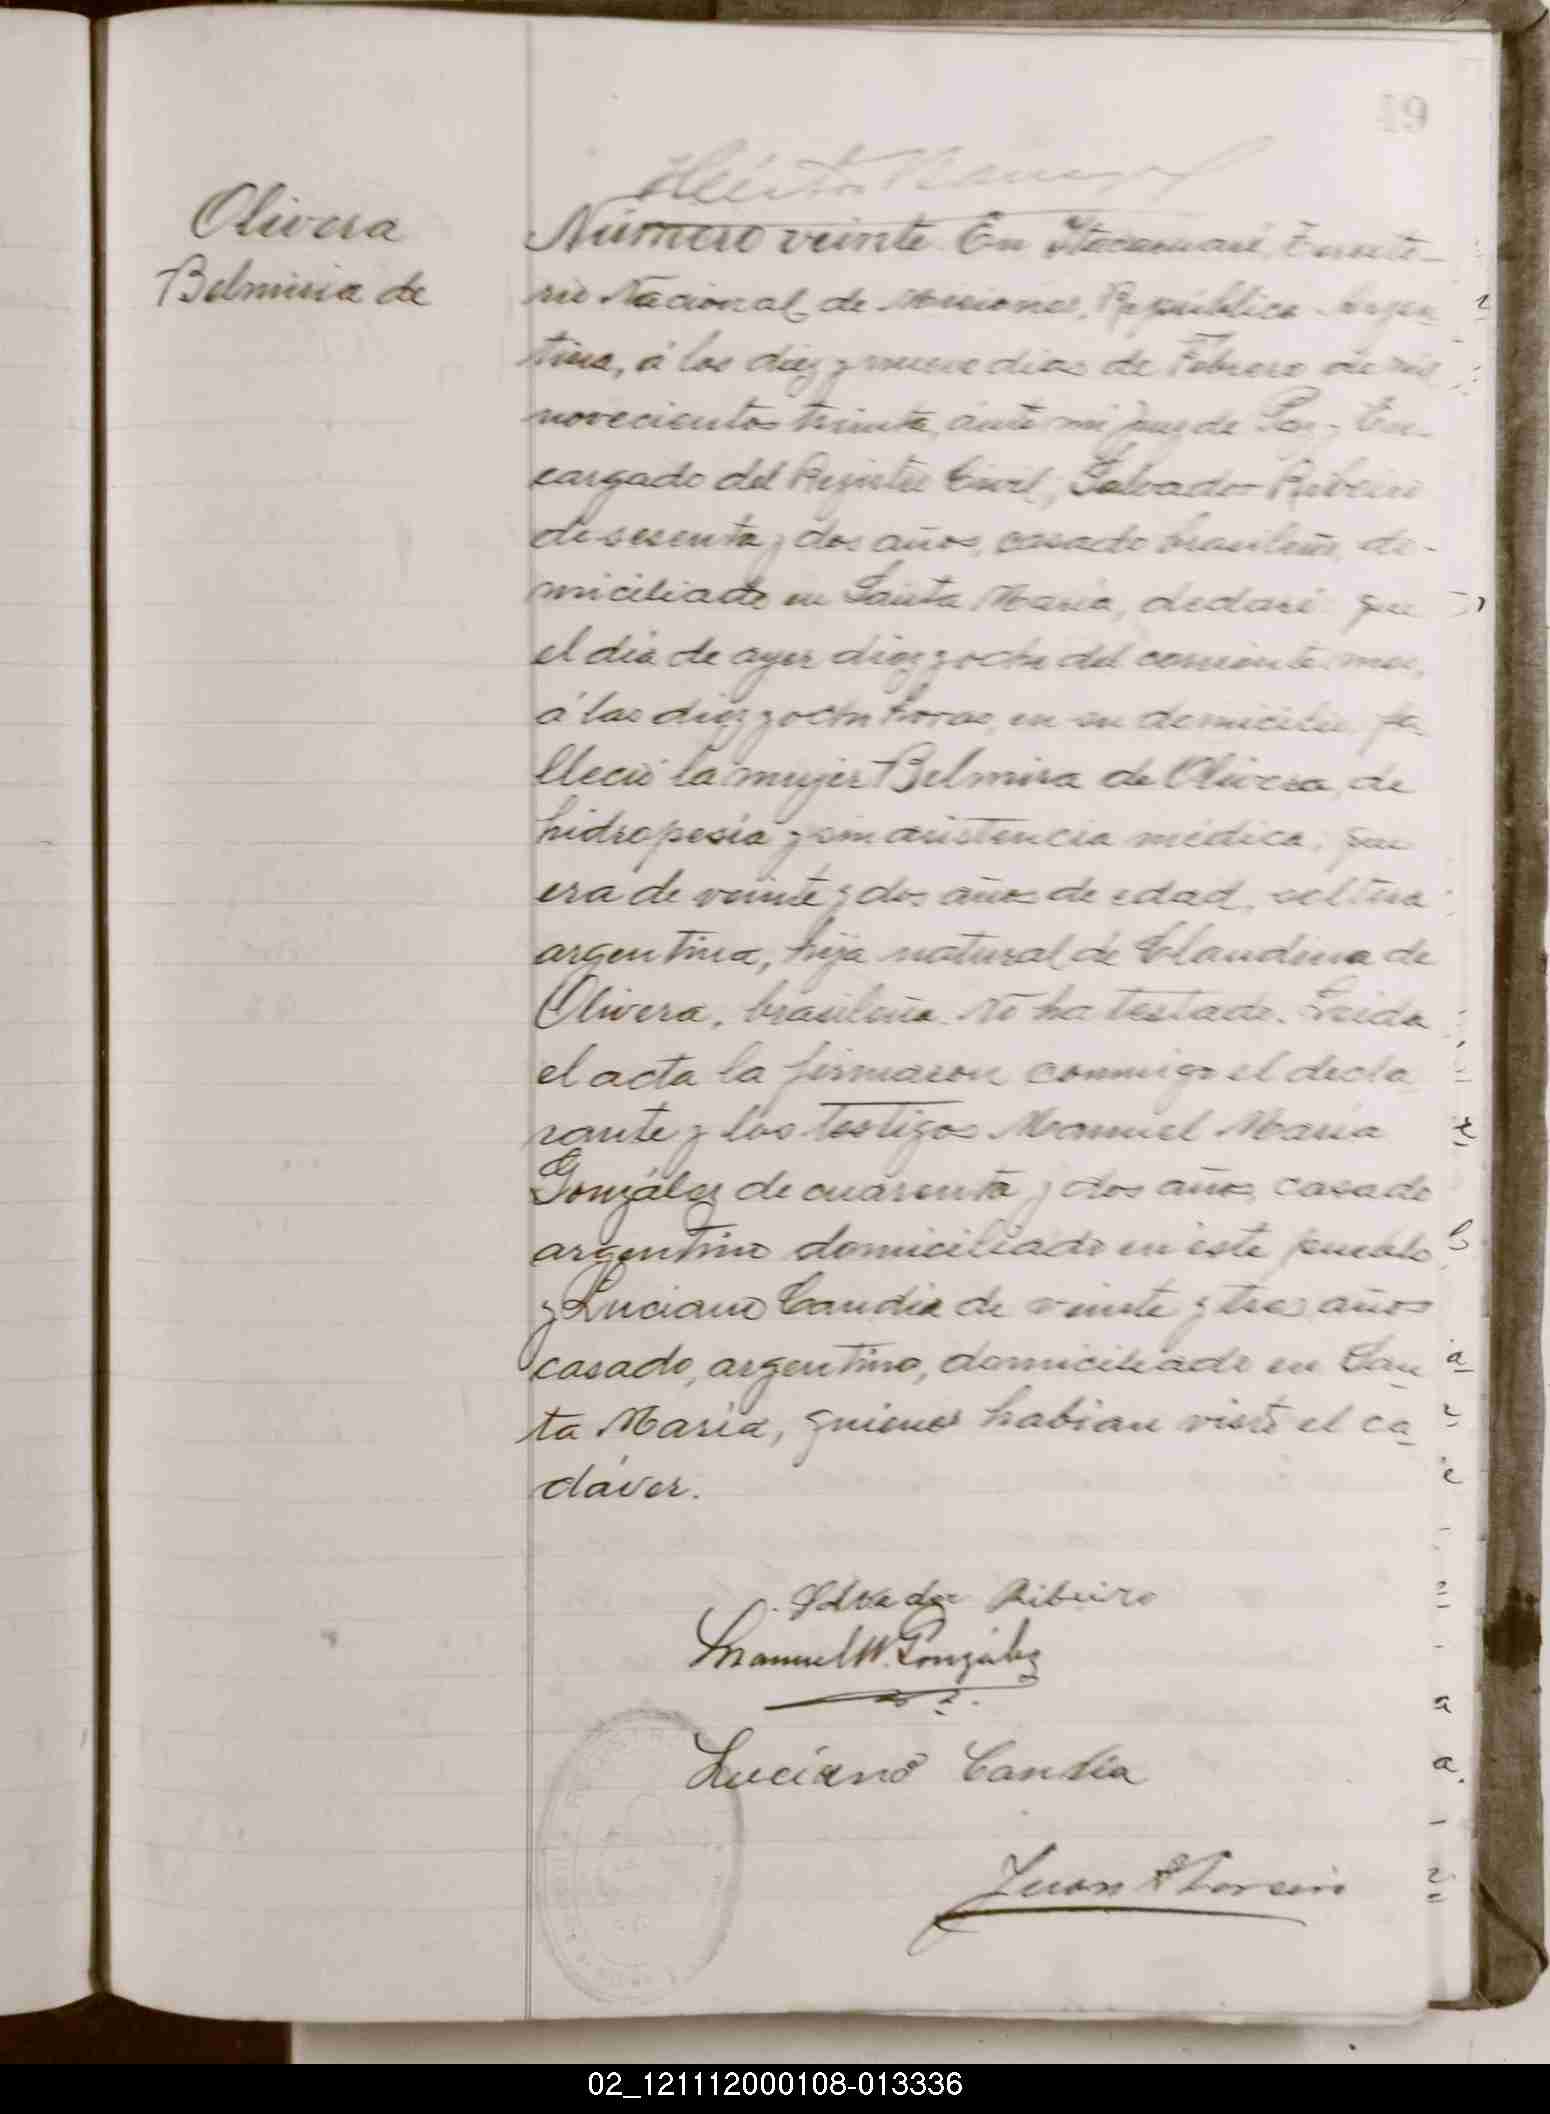 49
Héctor
Olivera
Belmira de
Número veinte. En Itacaruaré, Territo-
rio Nacional de Misiones, República Argen
tina, á los diez y nueve dias de Febrero de mil
novecientos treinta, ante mi Juez de Paz y En-
cargado del Registro Civil, Salvador Ribeiro
de sesenta y dos años, casado brasileño, do-
miciliado en Santa María, declaró que
el día de ayer diez y ocho del corriente mes,
á las diez y ocho horas, en su domicilio fa
lleció la mujer Belmira de Olivera, de
hidropesía y sin asistencia médica, que
era de veinte y dos años de edad, soltera
argentina, hija natural de Claudina de
Olivera, brasileña. No ha testado. Leida
el acta la firmaron conmigo el decla
rante y los testigos Manuel María
González de cuarenta y dos años, casado
argentino domiciliado en este pueblo
y Luciano Candia de veinte y tres años
casado, argentino, domiciliado en San
ta María, quienes habian visto el ca
dáver.
Salvador Ribeiro
Manuel M. González
Luciano Candia
Juan
02_121112000108-013336